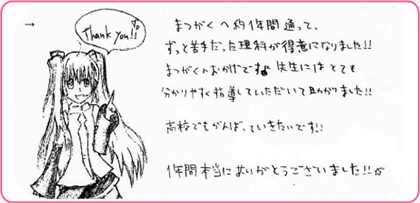 Thank you!!
まつがくへ約1年間通って、
ずっと苦手だった理科が得意になりました!!
まつがくのおかげです♪ 先生にはとても
分かりやすく指導していただいて助かりました!!
高校でもがんばっていきたいです!!
1年間本当にありがとうございました!!